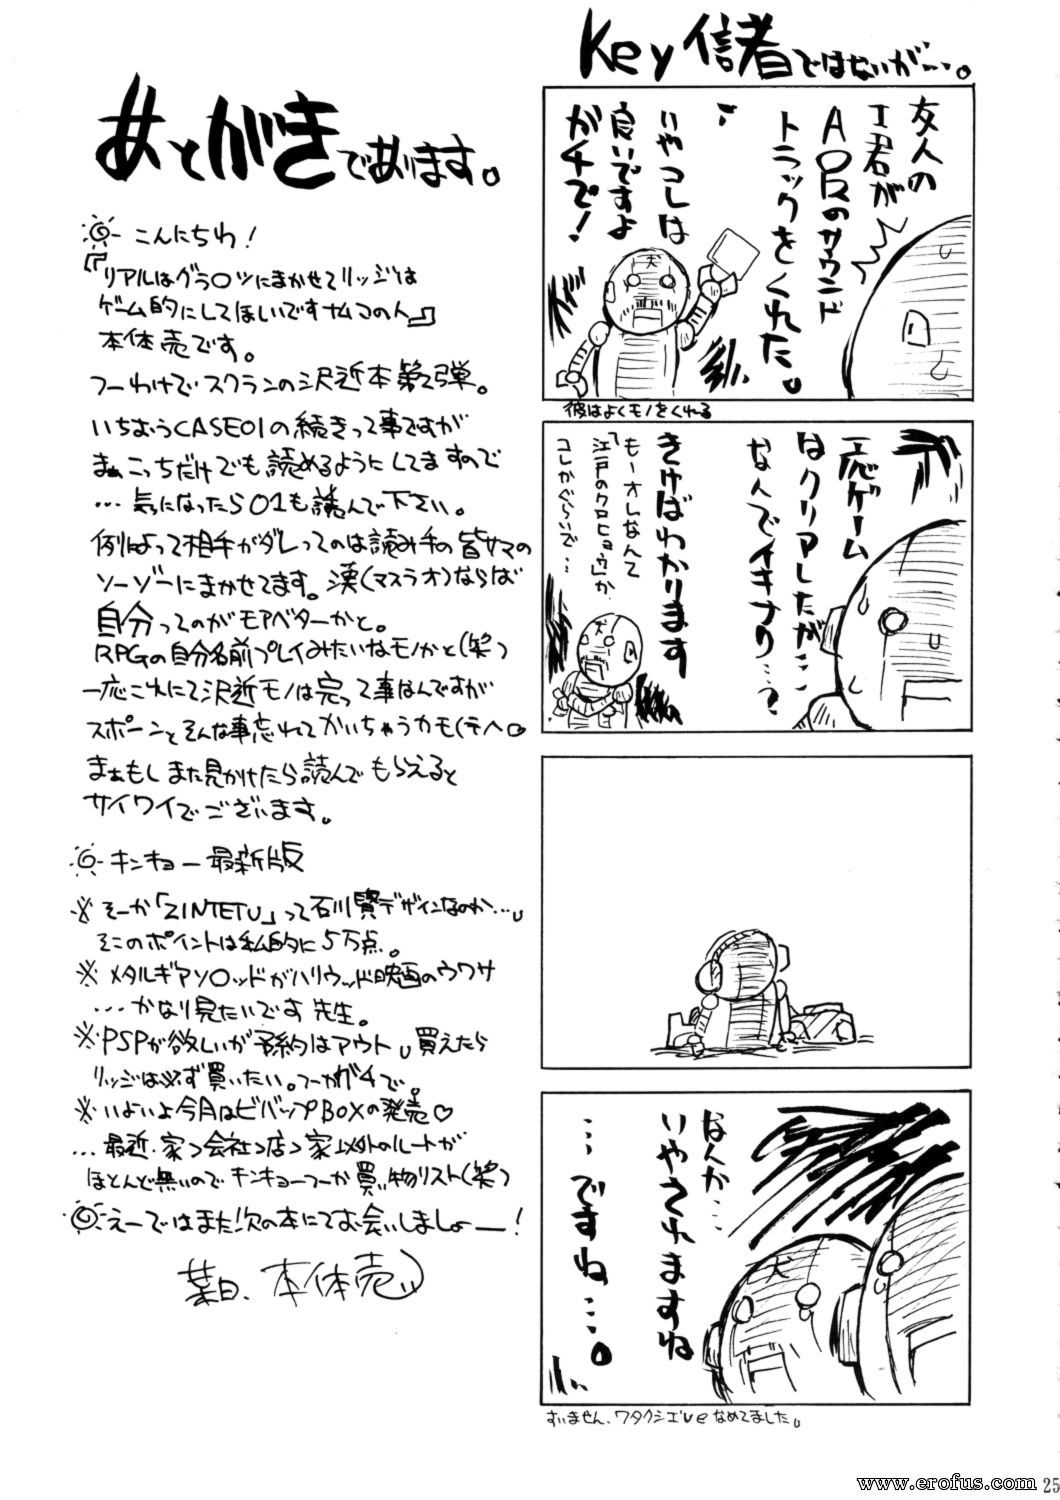 Key信者ではないが…。
友人の
I君が
AIRのサウンド
トラックをくれた。
いやコレは
良いですよ
ガチで!
彼はよくモノをくれる
一応ゲーム
はクリアしたが…
なんでイキナリ…?
きけばわかります
もーオレなんて
「江戸のクロヒョウ」か
コレかぐらいで…
なんか…
いやされますね
…ですね…。
すいません、ワタクシ
なめてました。
あとがきであります。
こんにちわ!
『リアルはグラ○ツにまかせてリッジは
ゲーム的にしてほしいですナムコの人』
本体売です。
つーわけでスクランの沢近本第2弾。
いちおうCASE01の続きって事ですが
まぁこっちだけでも読めるようにしてますので
…気になったら01も読んで下さい。
例によって相手がダレってのは読み手の皆サマの
ソーゾーにまかせてます。漢(マスラオ)ならば
自分ってのがモアベターかと。
RPGの自分名前プレイみたいなモノかと(笑)
一応これにて沢近モノは完って事なんですが
スポーンとそんな事忘れてかいちゃうカモ(テヘ。
まぁもしまた見かけたら読んでもらえると
サイワイでございます。
キンキョー最新版
※そーか「ZINTETU」って石川賢デザインなのか…。
そこのポイントは私的に5万点。
※メタルギアソ○ッドがハリウッド映画のウワサ
…かなり見たいです先生。
※PSPが欲しいが予約はアウト。買えたら
リッジは必ず買いたい。つーかガチで。
※いよいよ今月はビバップBOXの発売♡
…最近、家→会社→店→家以外のルートが
ほとんど無いのでキンキョーつーか買い物リスト(笑)
えーではまた次の本にてお会いしましょー!
葉月、本体売
www.erofus.com
25